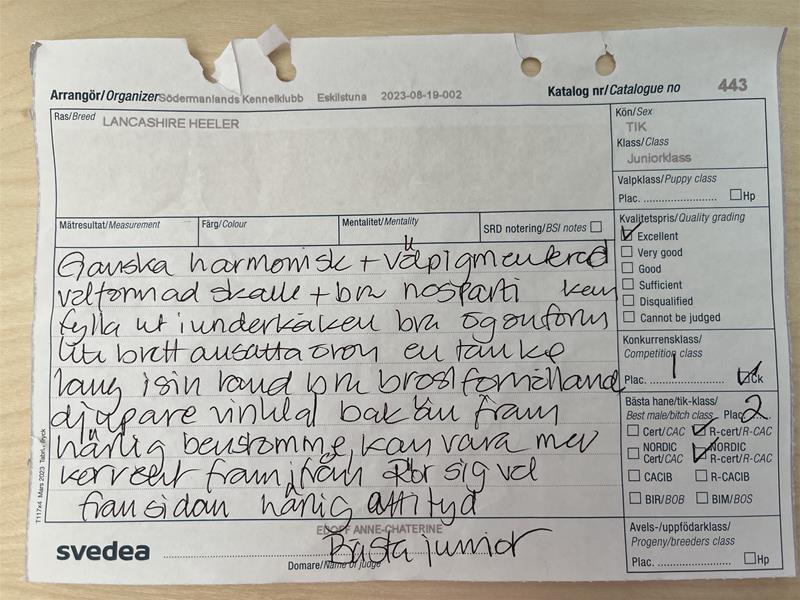 Arrangör/Organizer Södermanlands Kennelklubb Eskilstuna 2023-08-19-002
Katalog nr/Catalogue no 443
Ras/Breed LANCASHIRE HEELER
Kön/Sex
TIK
Klass/Class
Juniorklass
Valpklass/Puppy class
Plac. Hp
Mätresultat/Measurement Färg/Colour Mentalitet/Mentality SRD notering/BSI notes
Kvalitetspris/Quality grading
Excellent
Very good
Good
Sufficient
Disqualified
Cannot be judged
Ganska harmonisk + välpigmenterad
välformad skalle + bra nosparti kan
fylla ut i underkäken bra ögonform
lite brett ansatta öron en tanke
lång i sin länd bra bröst förhålland
djupare vinklad bak än fram
härlig benstomme, kan vara mer
korrekt fram ifrån Rör sig väl
från sidan härlig attityd
Konkurrensklass/
Competition class
Plac. 1 Ck
Bästa hane/tik-klass/
Best male/bitch class Plac. 2
Cert/CAC R-cert/R-CAC
NORDIC Cert/CAC NORDIC R-cert/R-CAC
CACIB R-CACIB
BIR/BOB BIM/BOS
Avels-/uppfödarklass/
Progeny/breeders class
Plac. Hp
T117x4 Mars 2023
svedea
ANNE-CHATERINE
Bästa junior
Domare/Name of judge